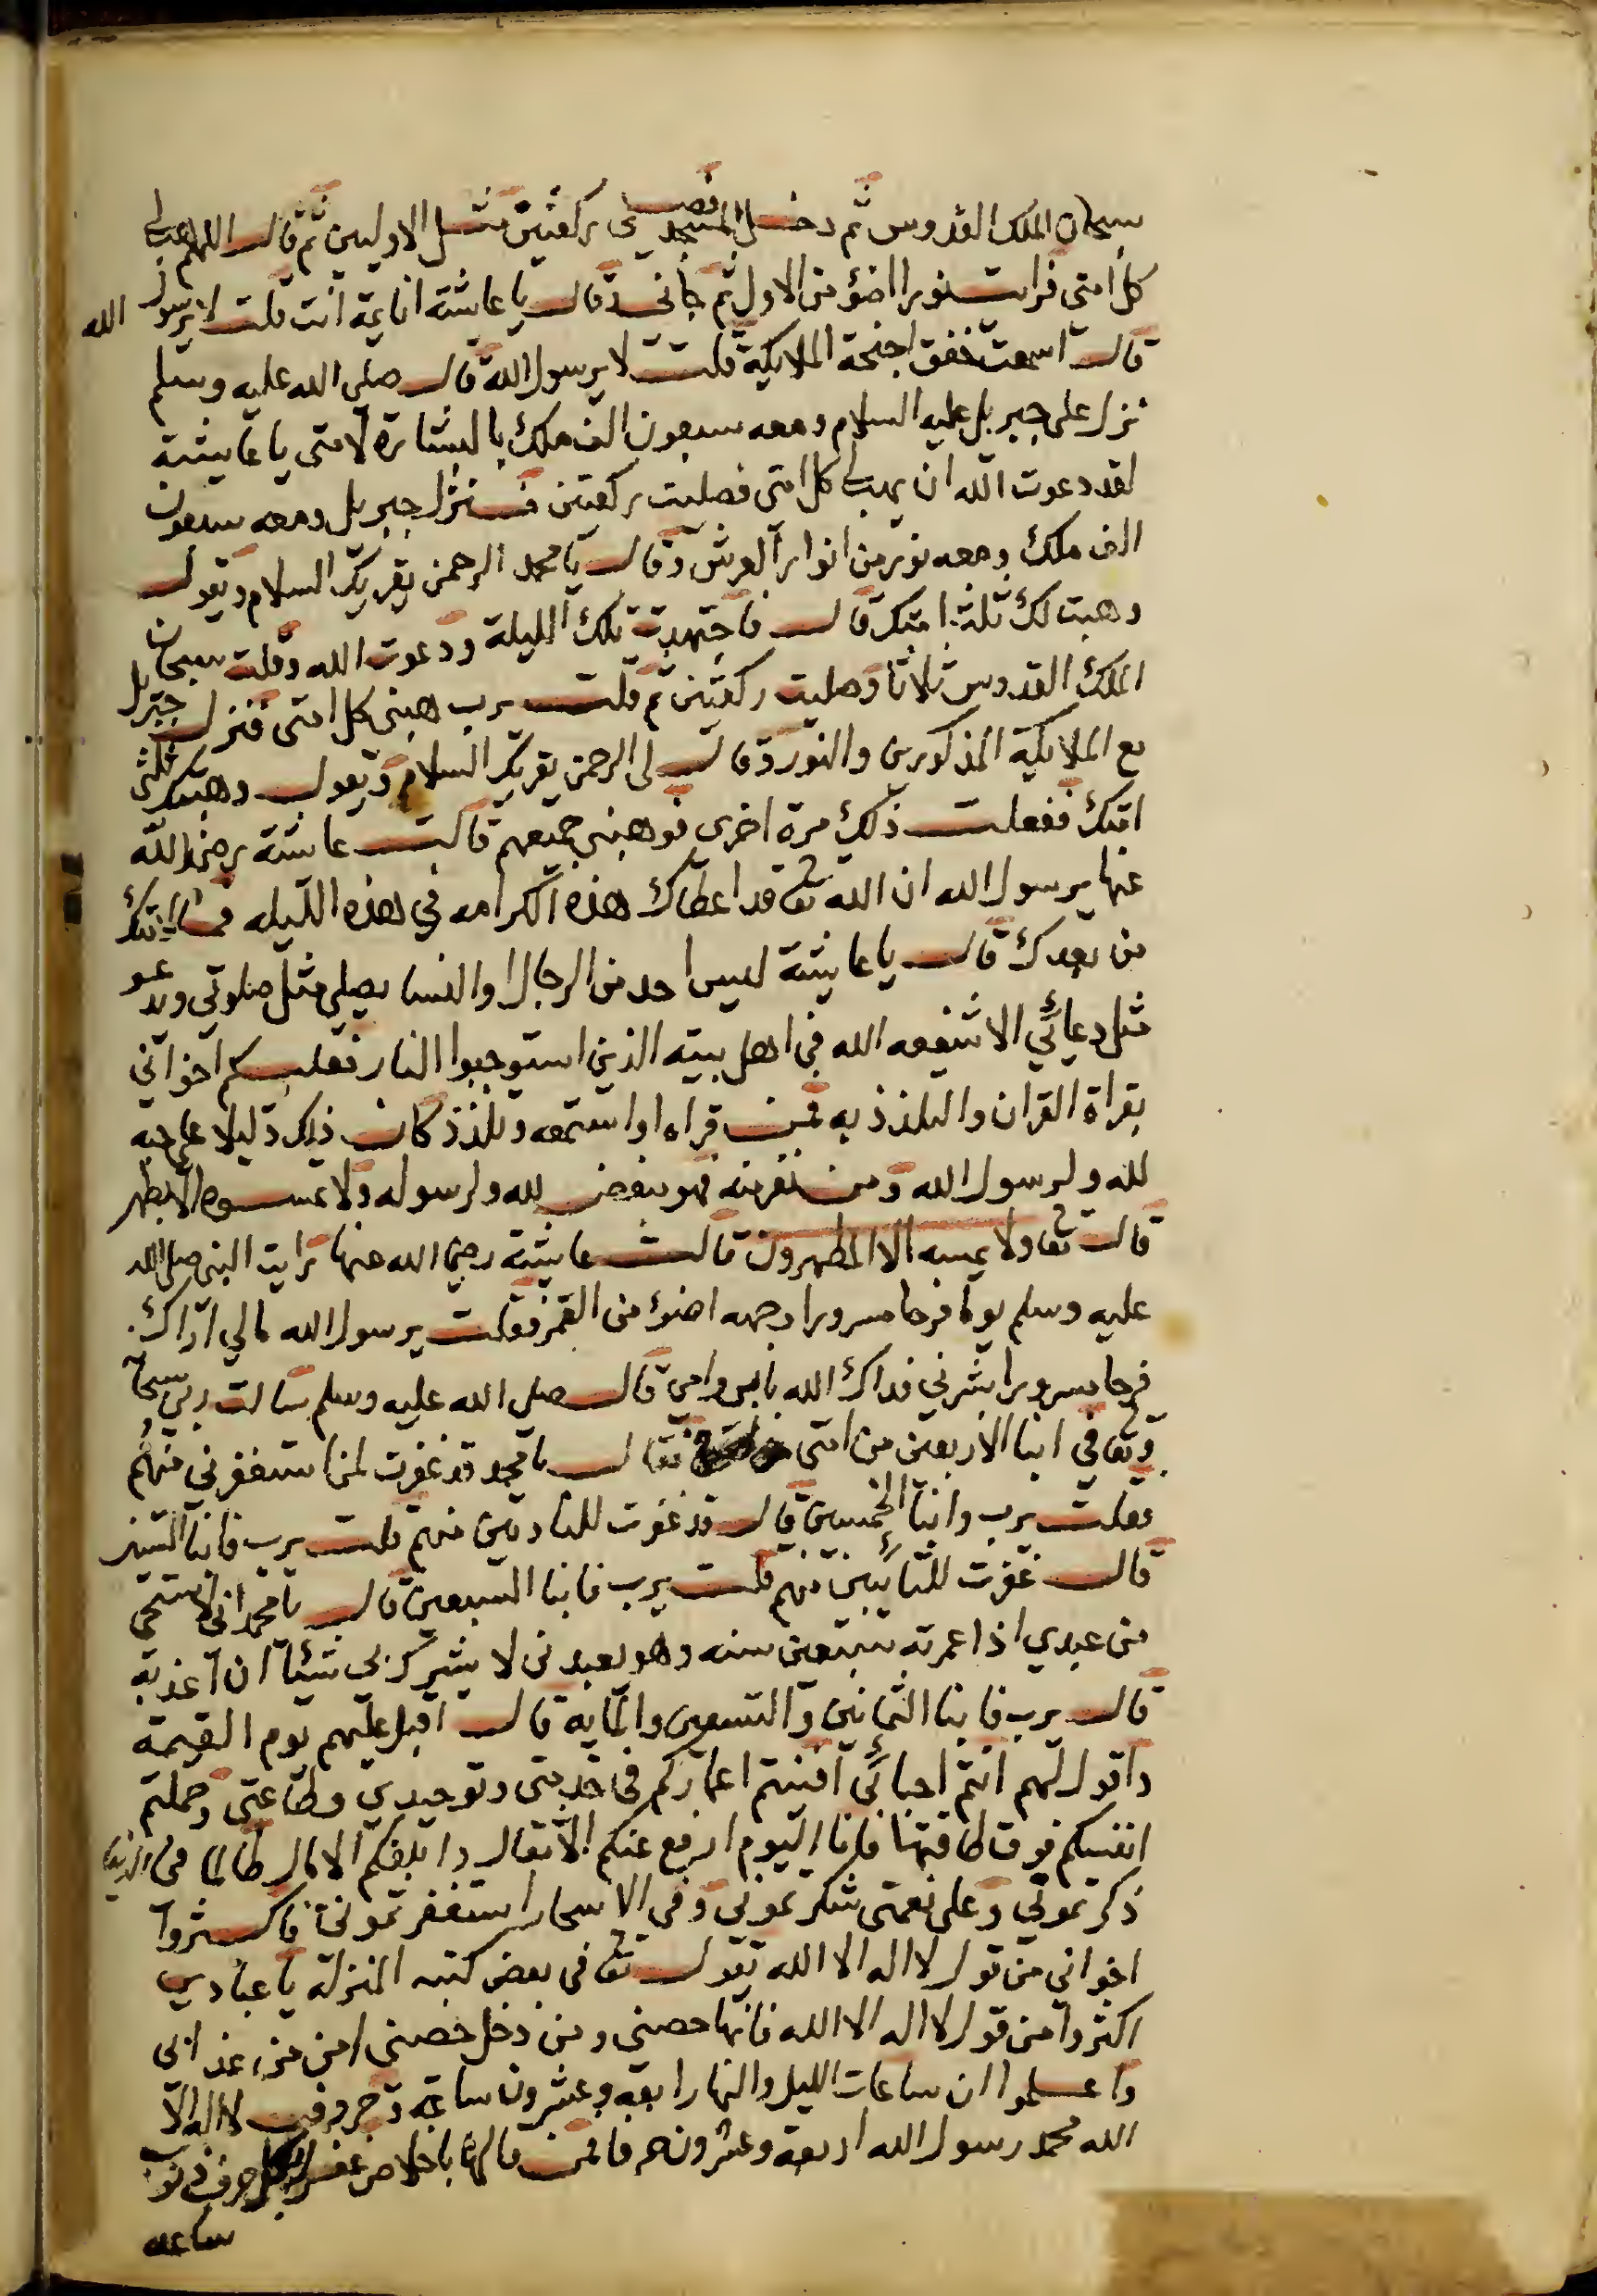 سبحان الملك القدوس ثم دخل المسجد فصلى ركعتين مثل الاوليين ثم قال اللهم هب لي
كل امتي فرايت نورا اضؤ من الاول ثم جاني وقال يا عايشة انايمة انت قلت لا يرسول الله
قال اسمعت خفق اجنحة الملايكة قلت لا يرسول الله قال صلى الله عليه وسلم
نزل علي جبريل عليه السلام ومعه سبعون الف ملك بالبشارة لامتي يا عايشة
لقد دعوت الله ان يهب لي كل امتي فصليت ركعتين فنزل جبريل ومعه سبعون
الف ملك ومعه نور من انوار العرش وقال يا محمد الرحمن يقريك السلام ويقول
وهبت لك ثلث امتك قال فاجتهدت تلك الليلة ودعوت الله وقلت سبحان
الملك القدوس ثلاثا وصليت ركعتين ثم قلت يرب هبني كل امتي فنزل جبريل
مع الملايكة المذكورين والنور وقال لي الرحمن يقريك السلام ويقول وهبتك ثلثي
امتك ففعلت ذلك مرة اخرى فوهبني جميعهم قالت عايشة رضي الله
عنها يرسول الله ان الله تعا قد اعطاك هذه الكرامه في هذه الليله فما لامتك
من بعدك قال يا عايشة ليس احد من الرجال او النسا يصلي مثل صلوتي ويدعو
مثل دعائي الا شفعه الله في اهل بيته الذين استوجبوا النار فعليكم اخواني
بقراة القران والتلذذ به فمن قراه او استمعه وتلذذ كان ذلك دليلا على حبه
لله ولرسول الله ومن نفر منه فهو مبغض لله ولرسوله ولا يمسوه الا بطهر
قال تعا ولا يمسه الا المطهرون قالت عايشة رضي الله عنها رايت النبي صلى الله
عليه وسلم يوما فرحا مسرورا وجهه اضؤ من القمر فقلت يرسول الله مالي اراك
فرحا مسرورا بشرني فداك الله بابي وامي قال صلى الله عليه وسلم سالت ربي سبحانه
وتعا في ابنا الاربعين من امتي فقال يا محمد قد غفرت لمن استغفرني منهم
فقلت يرب وابنا الخمسين قال قد غفرت للنادمين منهم قلت يرب فابنا الستين
قال غفرت للتائبين منهم قلت يرب فابنا السبعين قال يا محمد اني لاستحي
من عبدي اذا عمرته سبعين سنه وهو يعبدني لا يشرك بي شئا ان اعذبه
قال يرب فابنا الثمانين والتسعين والمايه قال اقبل عليهم يوم القيمة
واقول لهم انتم احبائي افنيتم اعماركم في خدمتي وتوحيدي وطاعتي وحملتم
انفسكم فوق طاقتها فانا اليوم ارفع عنكم الاثقال وابلغكم الامال طالما في الدنيا
ذكرتموني وعلى نعمتي شكرتموني وفي الاسحار استغفرتموني فاكثروا
اخواني من قول لا اله الا الله يقول تعا في بعض كتبه المنزلة يا عبادي
اكثروا من قول لا اله الا الله فانها حصني ومن دخل حصني امن من عذابي
واعلموا ان ساعات الليل والنهار اربعه وعشرون ساعة وحروف لا اله الا
الله محمد رسول الله اربعة وعشرون حرفا فمن قالها باخلاص غفر بكل حرف ذنوب
ساعه